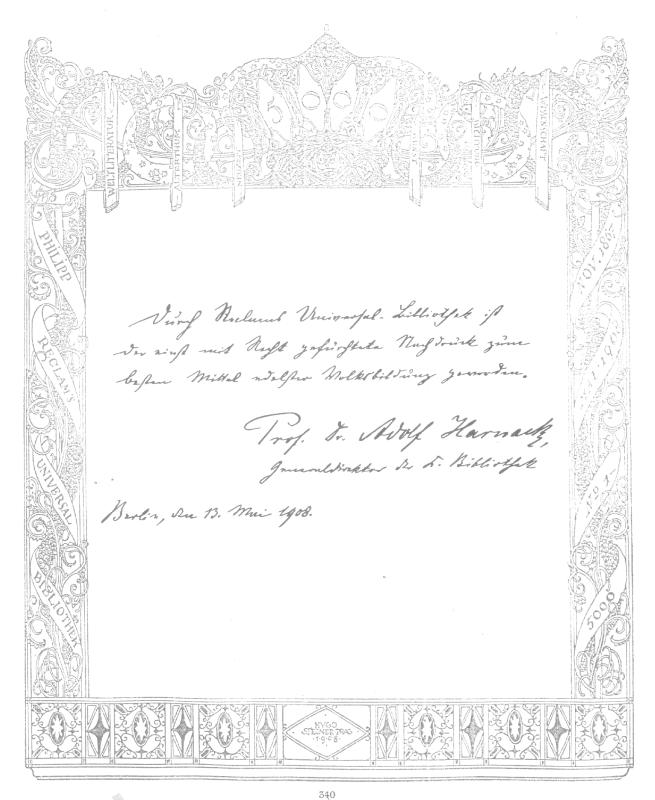 5000
WELTLITERATUR
PHILIPP
RECLAM'S
UNIVERSAL
BIBLIOTHEK
NOV. 1867
5000
Durch Reclams Universal-Bibliothek ist
der einst mit Recht gefürchtete Nachdruck zum
besten Mittel edelster Volksbildung geworden.
Prof. Dr. Adolf Harnack,
Generaldirektor der K. Bibliothek
Berlin, den 13. Mai 1908.
HVGO
STEINER PRAG
1908
340